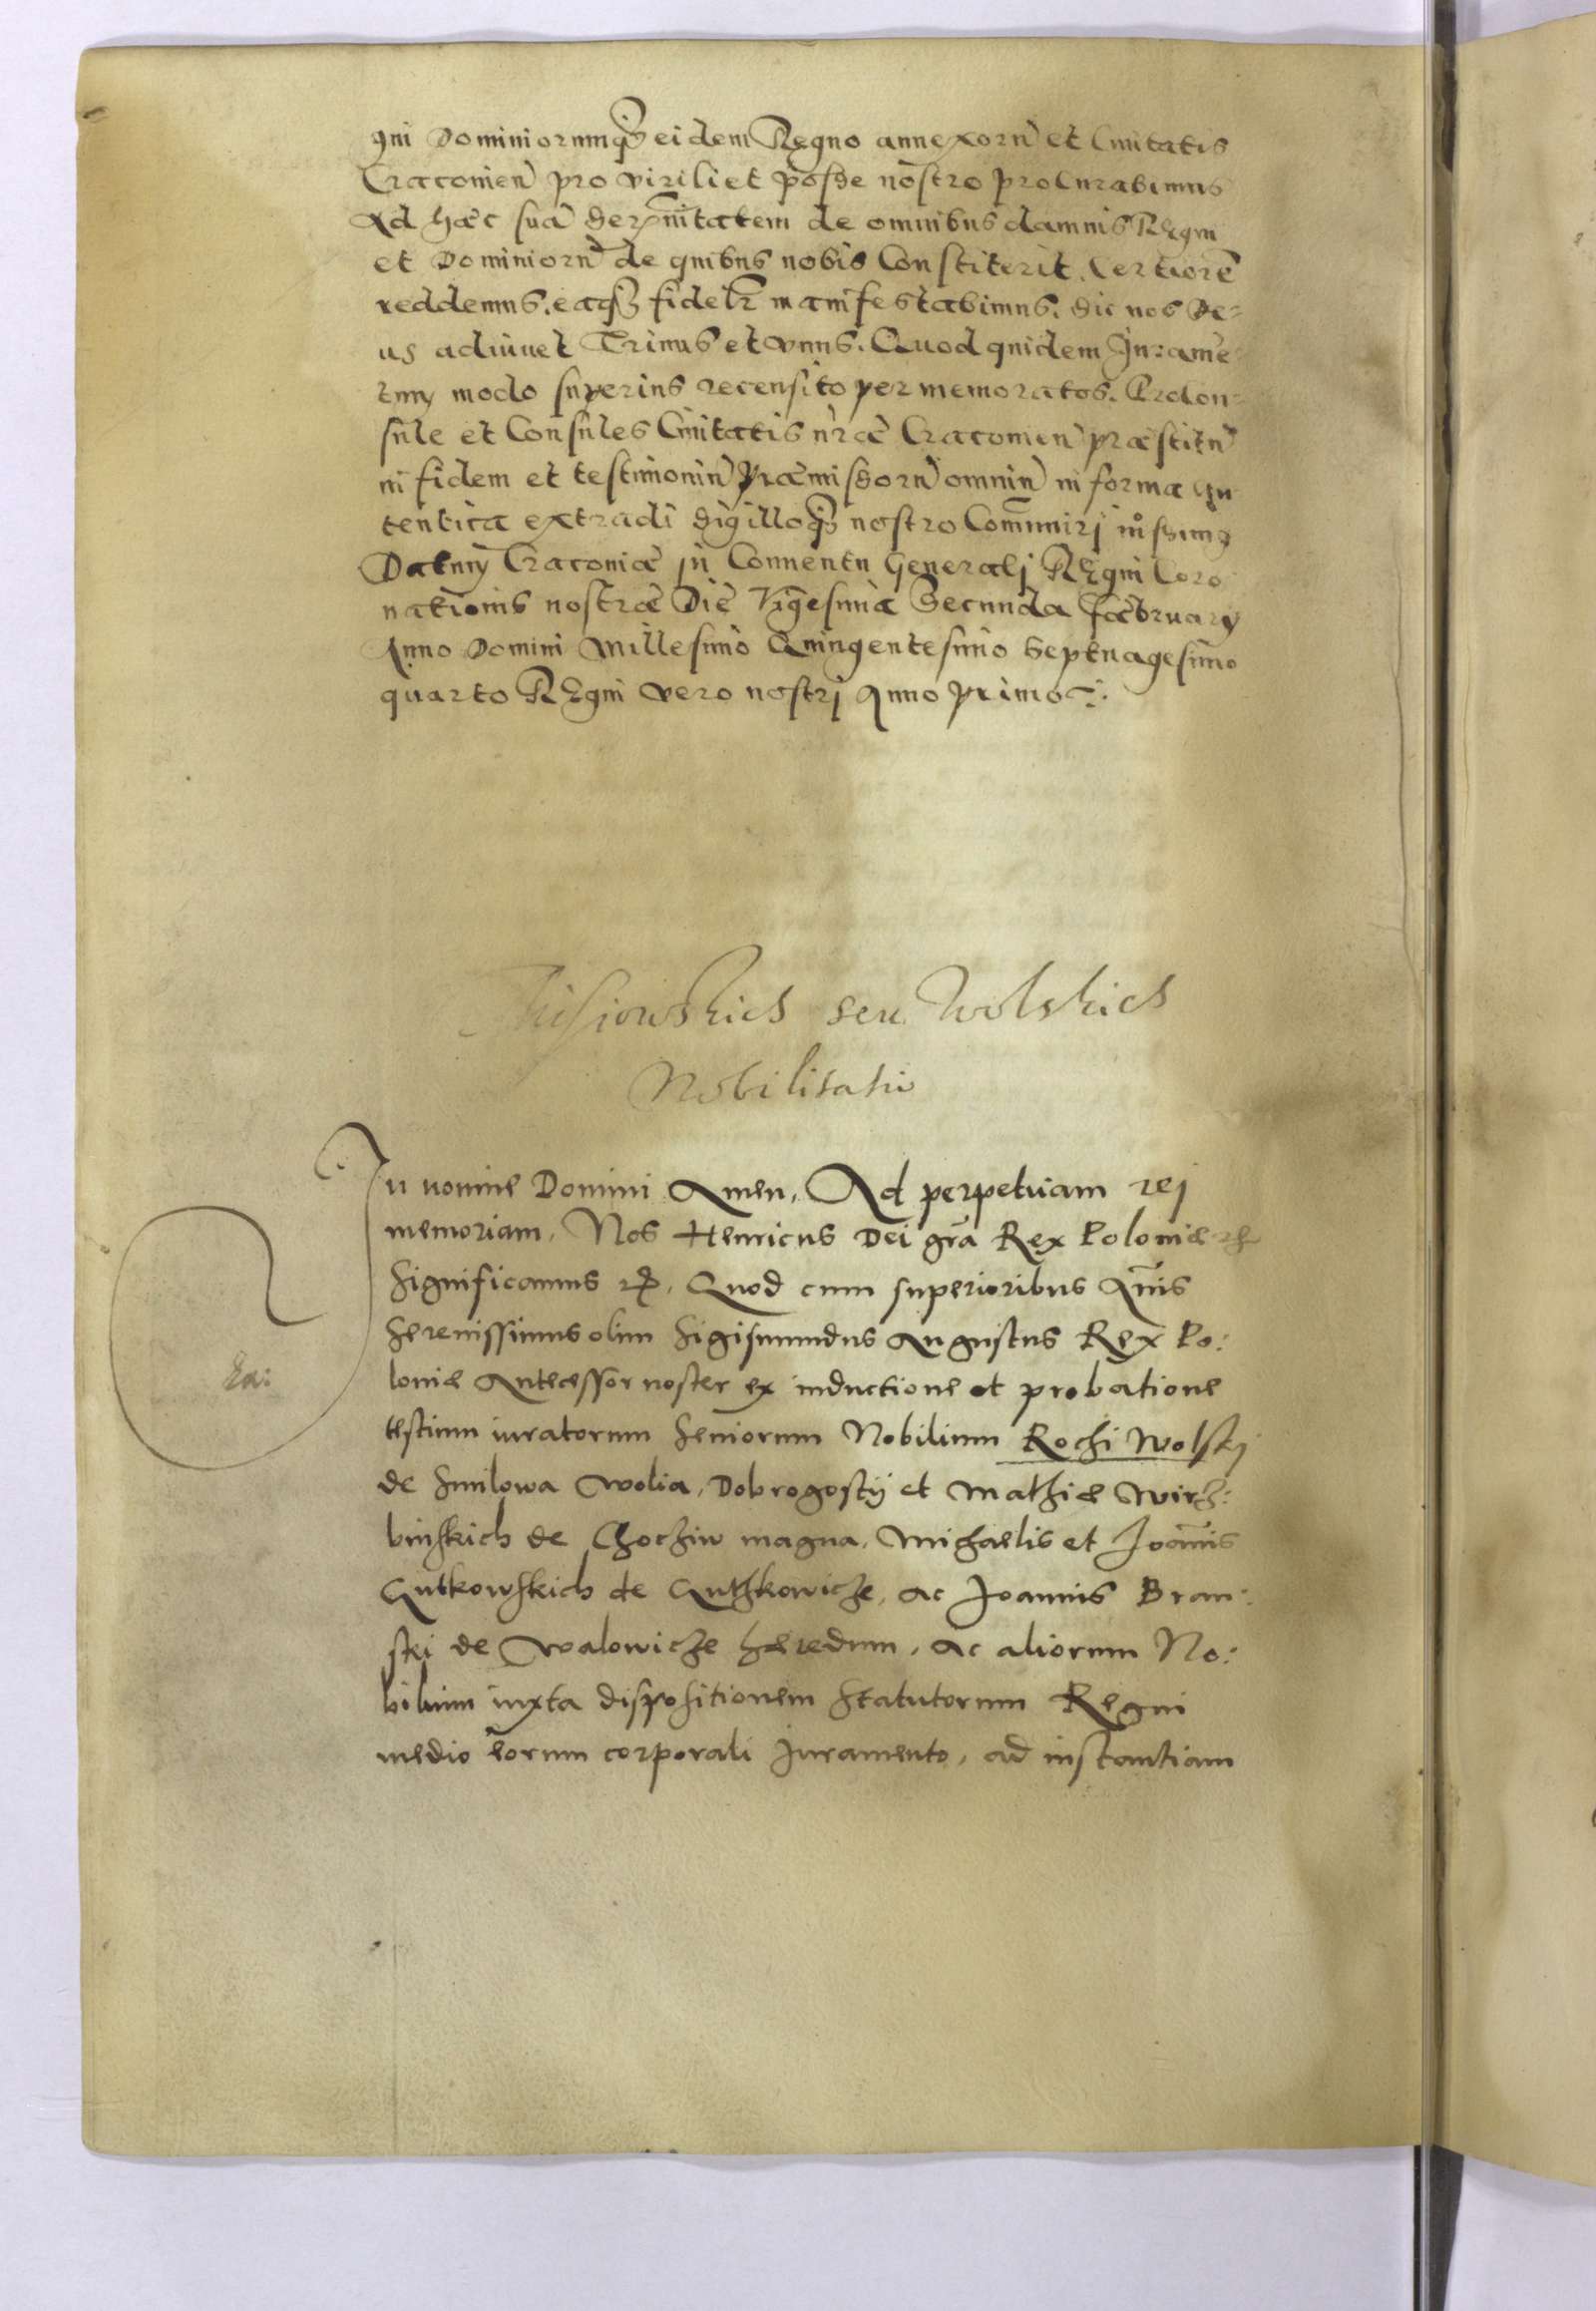 gni Dominiorumq̃ eidem Regno annexorũ et Ciuitatis
Cracouieñ pro virili et posse nostro procurabimus
Ad hæc suã Serenitatem de omnibus damnis Regni
et Dominiorũ de quibus nobis Constiterit. Certiorẽ
reddemus. eaq̃ fidelr̃ manifestabimus. Sic nos De=
us adiuuet Trinus et vnus. Quod quidem Iuramẽ
tum modo superius recensito per memoratos. Procon=
sule et Consules Ciuitatis nr̃æ Cracouieñ præstitũ
in fidem et testimoniũ præmissorũ omniũ in forma Au
tentica extradi Sigilloq̃ nostro Com̃uniri iussimus
Datum Cracoviæ in Conuentu Generali Regni Coro
nationis nostræ Die Vigesima Secunda Fæbruarij
Anno Domini Millesimo Quingentesimo Septuagesimo
quarto Regni vero nostri Anno primo
seu Wolskich
Nobilitatio
In nomine Domini Amen, Ad perpetuam rei
memoriam, Nos Henricus Dei gr̃a Rex Poloniæ
Significamus Quod cum superioribus Annis
Serenissimus olim Sigismundus Augustus Rex Po:
loniæ Antecessor noster ex inductione et probatione
testium iuratorum Seniorum Nobilium Rochi Wolskj
de Smilowa Wolia, Dobrogostij et Mathiæ Wirz:
binskich de Choczin magna, Michaelis et Joannis
Gutkowskich de Guthkowicze, ac Joannis Bran:
ski de Walowicze hæredum, ac aliorum No:
bilium iuxta dispositionem Statutorum Regni
medio eorum corporali Juramento, ad instantiam